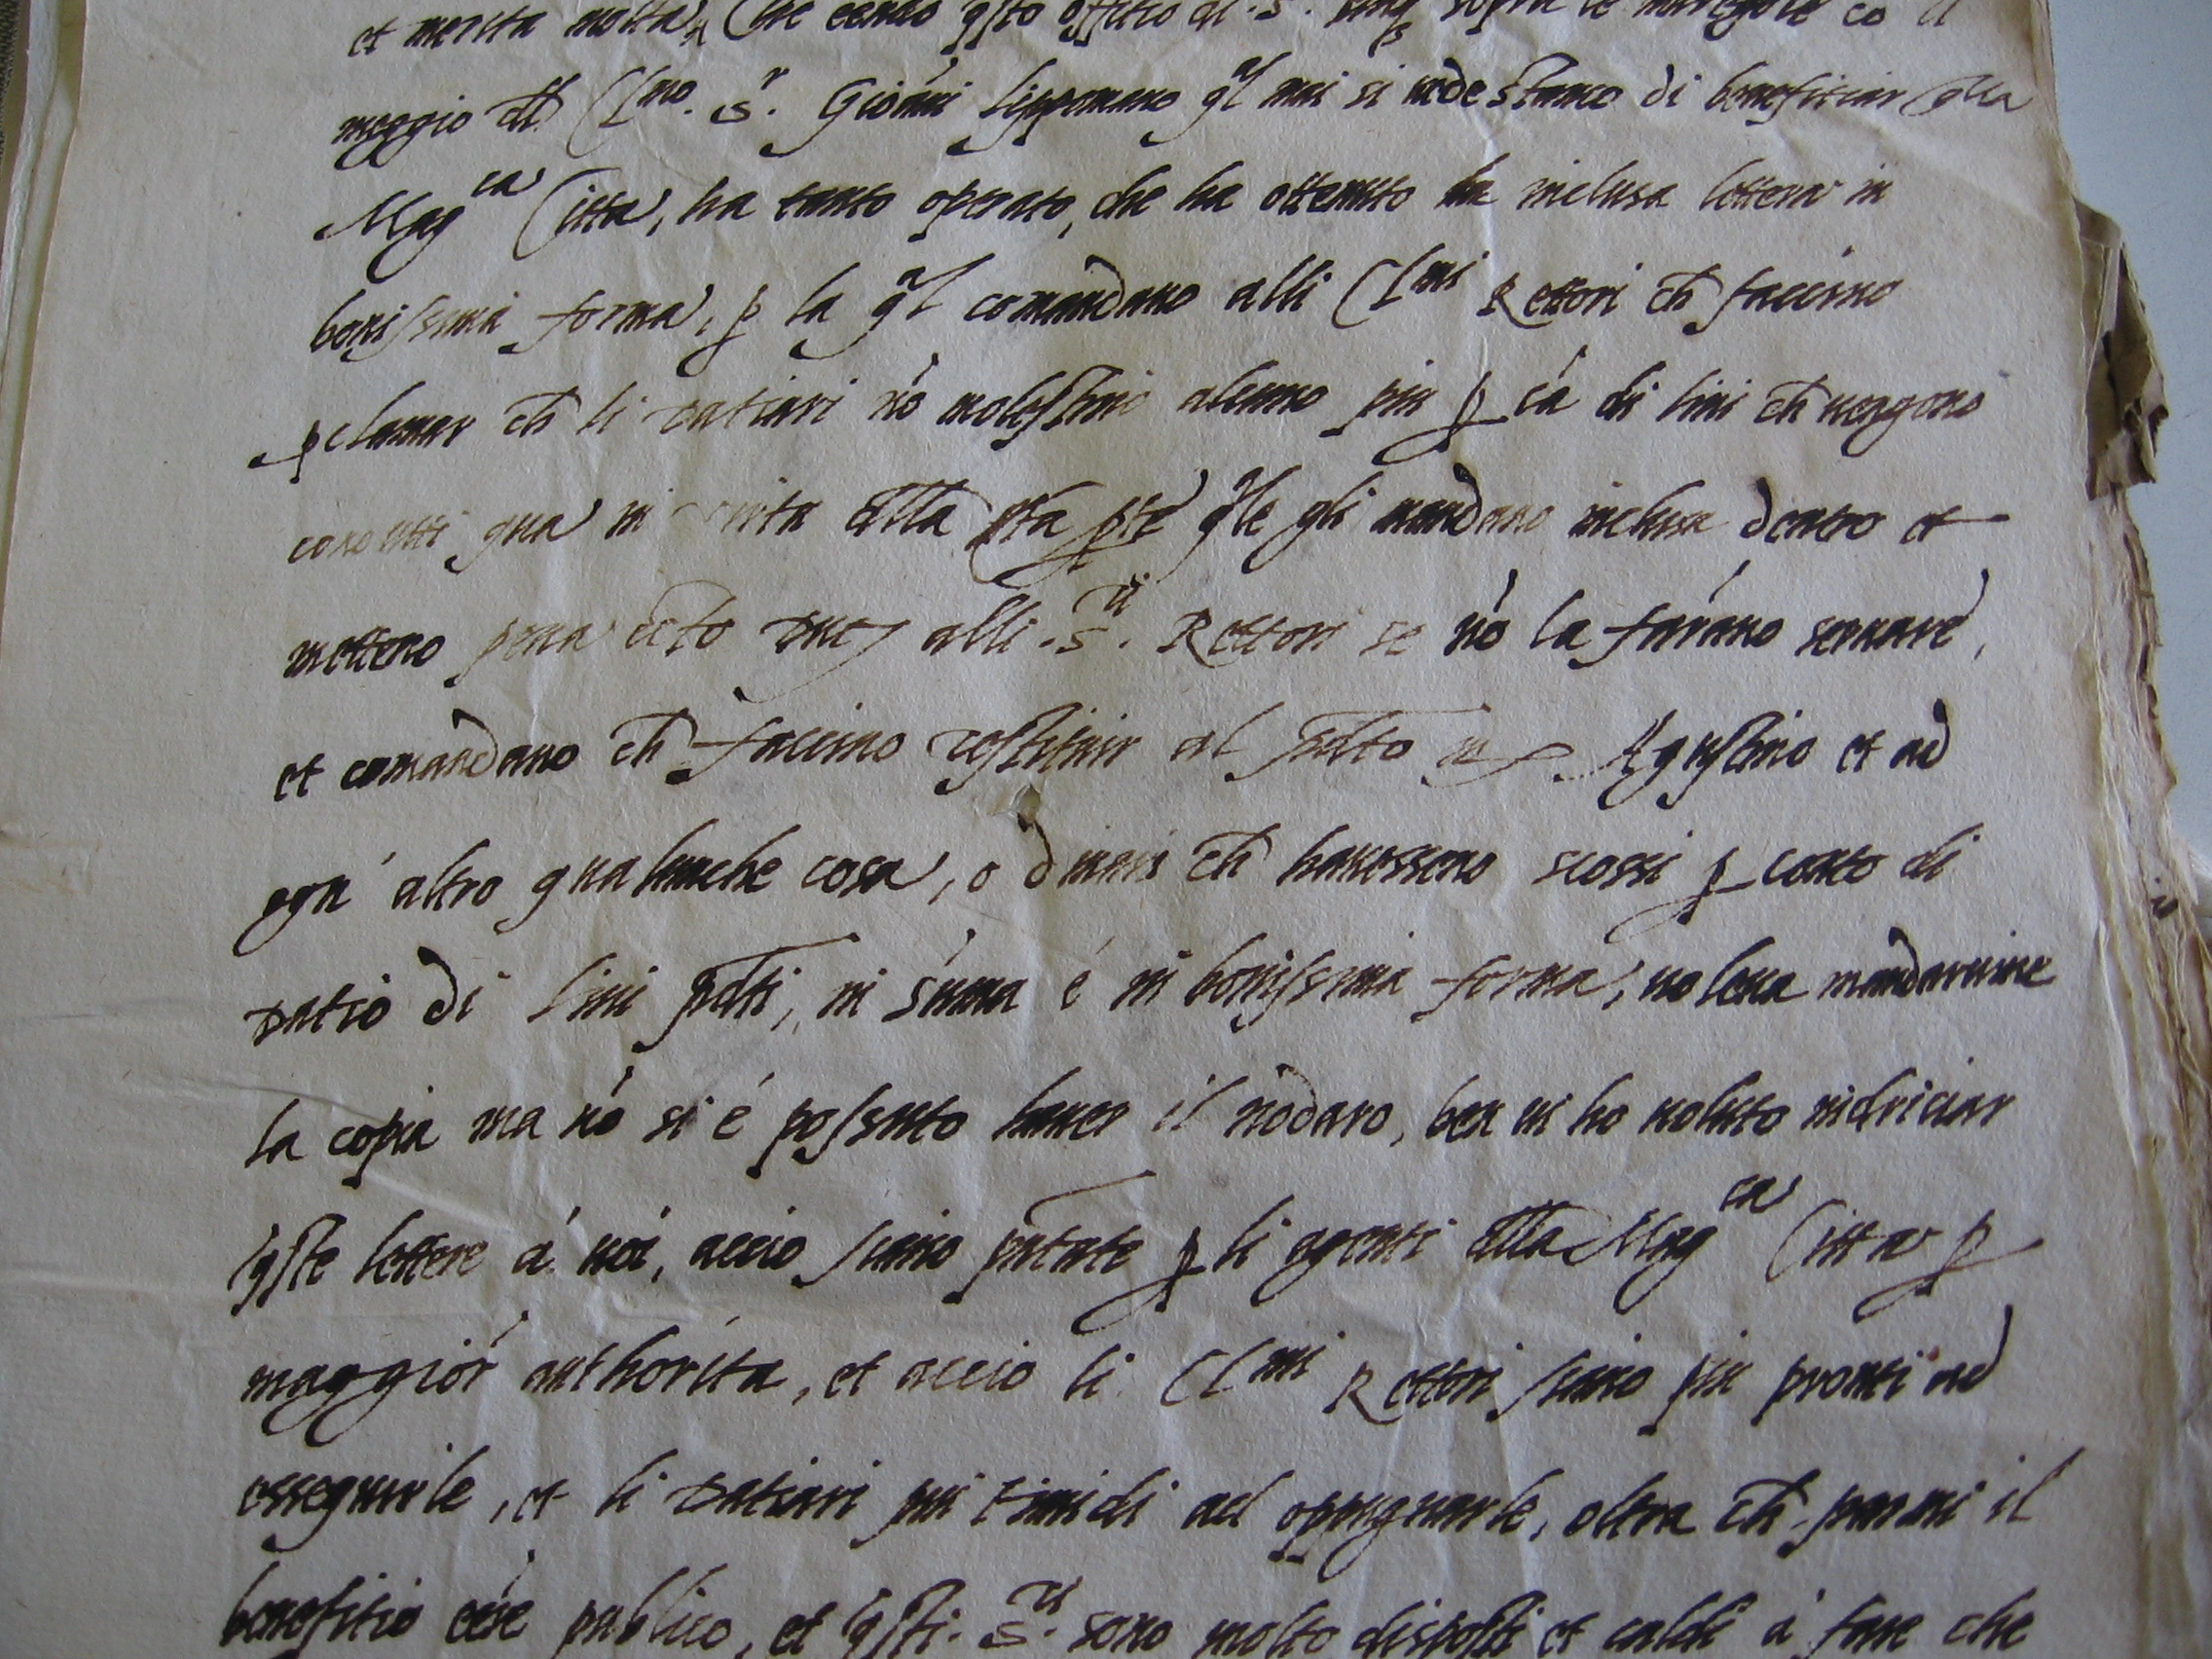 et merita molta, Che eendo qsto offitio di .S. sopra le
meggio dll Clmo. Sr. Gioãni Lippomano ql mai si uede stanco di benefitiar qlla
Magca Citta, ha tanto operato, che ha ottenuto la inclusa lettera in
bonissima forma, p la ql comandano alli Clmi Rettori ch faccino
pclamar ch li datiari nõ molestino alcuno piu p cã di lini ch uengono
condutti qua in uirtu dlla pta pte qle gli mandano inclusa dentro et
metteno pena alli .Sri. Rettori se nõ la farãno seruare,
et comandano ch faccino restituir al pdto m Agustino et ad
ogn' altro qualunche cosa, o dinari ch hauesseno scossi p conto di
datio di lini pdti, in sũma é in bonissima forma, uoleua mandaruine
la copia ma nõ si é possuto hauer il nõdaro, ben ui ho uoluto indriciar
qste lettere á uoi, accio siano pntate p li agenti dlla Magca Citta p
maggior authorita, et accio li Clmi Rettori siano piu pronti ad
esseguirle, et li datiari piu timidi ad oppugnarle, oltra ch parmi il
benefitio eẽre publico, et qsti .Sri. sono molto disposti et caldi á fare che